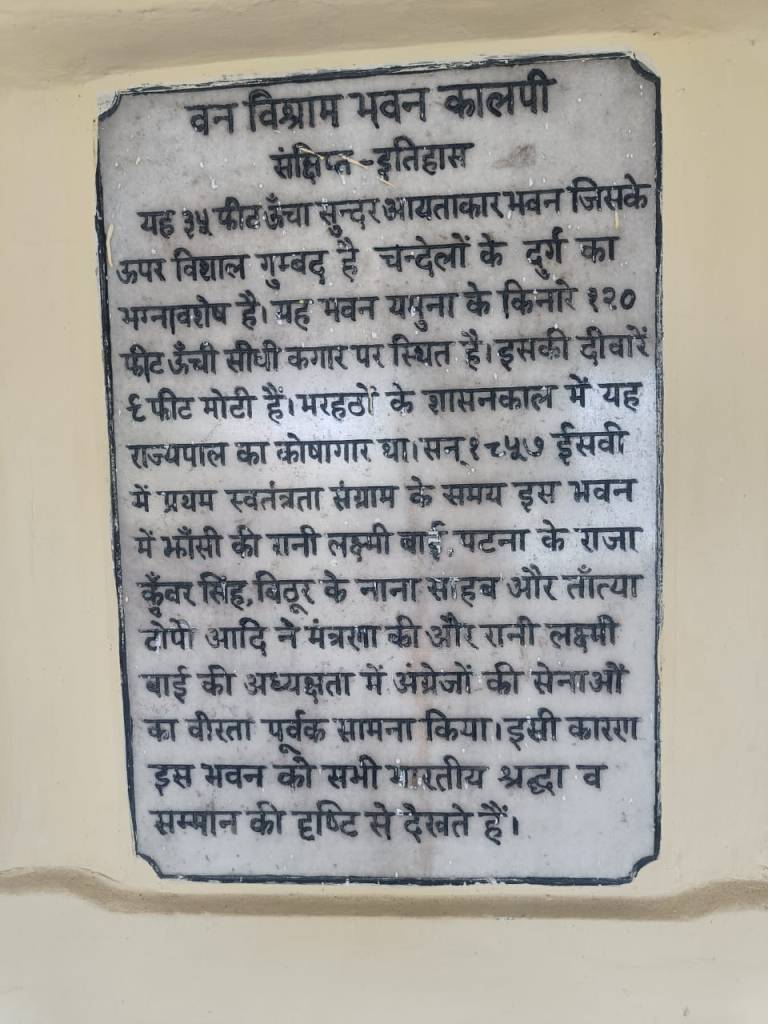 वन विश्राम भवन कालपी
संक्षिप्त -इतिहास
यह ३५ फीट ऊँचा सुन्दर आयताकार भवन जिसके
ऊपर विशाल गुम्बद है चन्देलों के दुर्ग का
भग्नावशेष है। यह भवन यमुना के किनारे १२०
फीट ऊँची सीधी कगार पर स्थित है। इसकी दीवारें
६ फीट मोटी हैं। मरहठों के शासनकाल में यह
राज्यपाल का कोषागार था। सन् १८५७ ईसवी
में प्रथम स्वतंत्रता संग्राम के समय इस भवन
में झाँसी की रानी लक्ष्मी बाई, पटना के राजा
कुँवर सिंह, बिठूर के नाना साहब और ताँत्या
टोपे आदि ने मंत्रणा की और रानी लक्ष्मी
बाई की अध्यक्षता में अंग्रेजों की सेनाओं
का वीरता पूर्वक सामना किया। इसी कारण
इस भवन को सभी भारतीय श्रद्धा व
सम्मान की दृष्टि से देखते हैं।